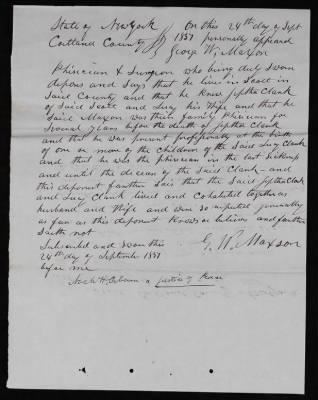 State of New York } On this 24th day of Sept
Cortland County } 1851 personally appeared
George W. Maxson
Phisician & Surgeon who being duly Sworn
depons and says that he lives in Scott in
Said County and that he knew Clark
of Said Scott and Lucy his Wife and that he
Said Maxson was their family Phisician for
several years before the death of Clark
and that he was present professionally at the birth
of one or more of the children of the Said Lucy Clark
and that he was the phisician in the last sickness
and untill the decease of the Said Clark - and
this deponent farther Sais that the Said Clark
and Lucy Clark lived and Cohabited together as
husband and Wife and were so reputed generally
as far as this deponent knows or believes and farther
saith not
Subscribed and Sworn this
24th day of September 1851
before me
G. W. Maxson
a justice of Peace